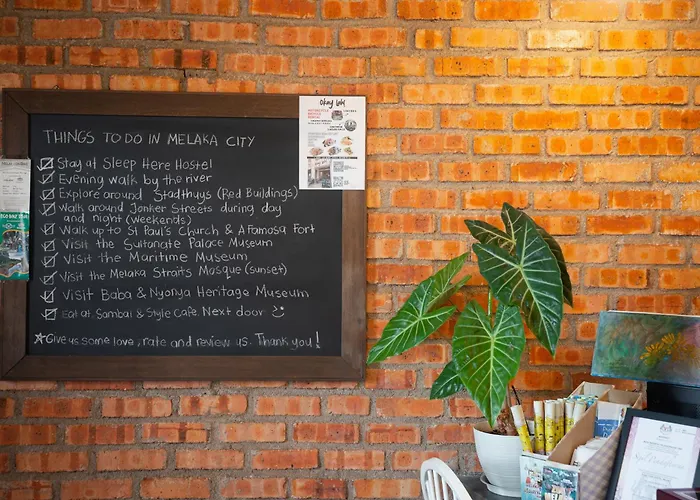 THINGS TO DO IN MELAKA CITY
Stay at Sleep Here Hostel
Evening walk by the river
Explore around Stadthuys (Red Buildings)
Walk around Jonker Streets during day
and night (weekends)
Walk up to St Paul's Church & A Famosa Fort
Visit the Sultanate Palace Museum
Visit the Maritime Museum
Visit the Melaka Straits Mosque (sunset)
Visit Baba & Nyonya Heritage Museum
Eat at Sambal & Style Cafe. Next door
Give us some love, rate and review us. Thank you!
Okay Lah!